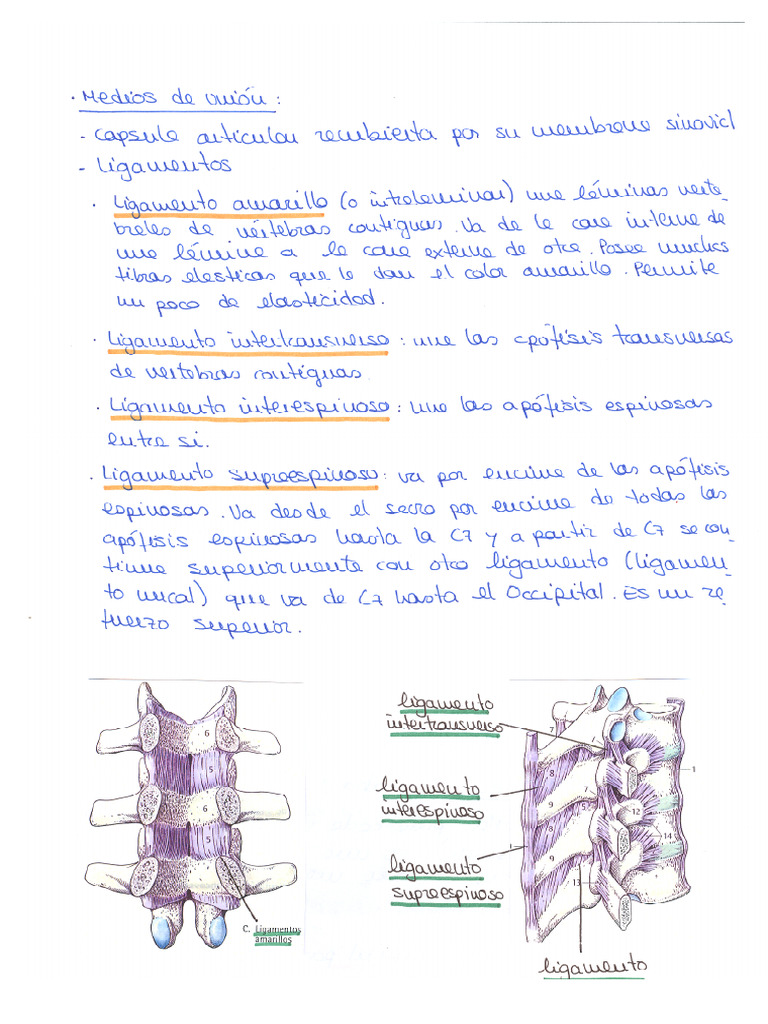 · Medios de unión:
- Capsula articular recubierta por su membrana sinovial
- Ligamentos
· Ligamento amarillo (o intralaminar) une láminas verte-
brales de vértebras contiguas. Va de la cara interna de
una lámina a la cara externa de otra. Posee muchas
fibras elasticas que le dan el color amarillo. Permite
un poco de elasticidad.
· Ligamento intertransverso: une las apófisis transversas
de vertebras contiguas
· Ligamento interespinoso: une las apófisis espinosas
entre si.
· Ligamento supraespinoso: va por encima de las apófisis
espinosas. Va desde el sacro por encima de todas las
apófisis espinosas hasta la C7 y a partir de C7 se con-
tinua superiormente con otro ligamento (ligamen-
to nucal) que va de C7 hasta el Occipital. Es un re-
fuerzo superior.
6
5
6
5
C. Ligamentos
amarillos
ligamento
intertransverso
ligamento
interespinoso
ligamento
supraespinoso
ligamento
7
8
9
8
9
1
12
14
13
1